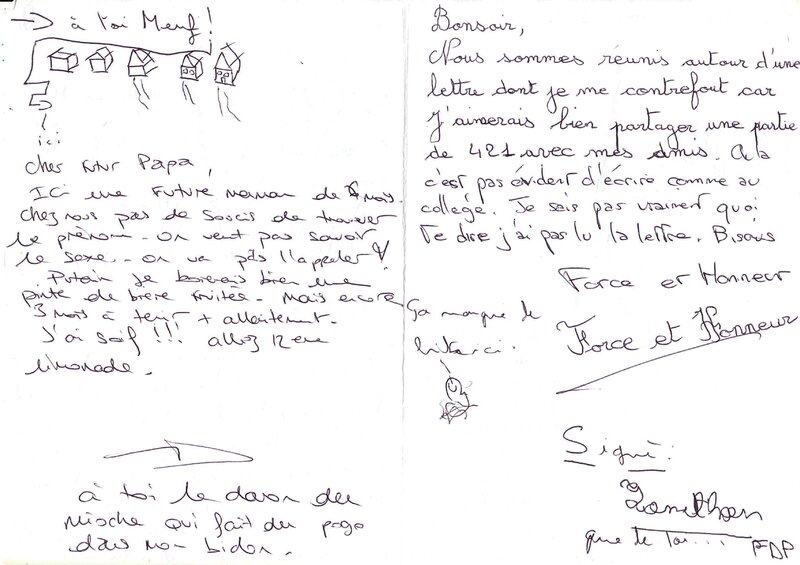 → à toi Meuf !
ici
cher futur Papa,
Ici une future maman de 6 mois.
Chez nous pas de soucis de trouver
le prénom. On veut pas savoir
le sexe. On va pas l'appeler
Putain je boirais bien une
pinte de bière fruitée. Mais encore
3 mois à tenir + allaitement.
J'ai soif !!! allez 12 ème
limonade.
à toi le daron du
mioche qui fait du pogo
dans mon bidon.
Bonsoir,
Nous sommes réunis autour d'une
lettre dont je me contrefout car
J'aimerais bien partager une partie
de 421 avec mes amis. A la
c'est pas évident d'écrire comme au
collège. Je sais pas vraiment quoi
te dire j'ai pas lu la lettre. Bisous
Force et Honneur
Ça manque de
Force et Honneur
Signé :
que de toi...
FDP